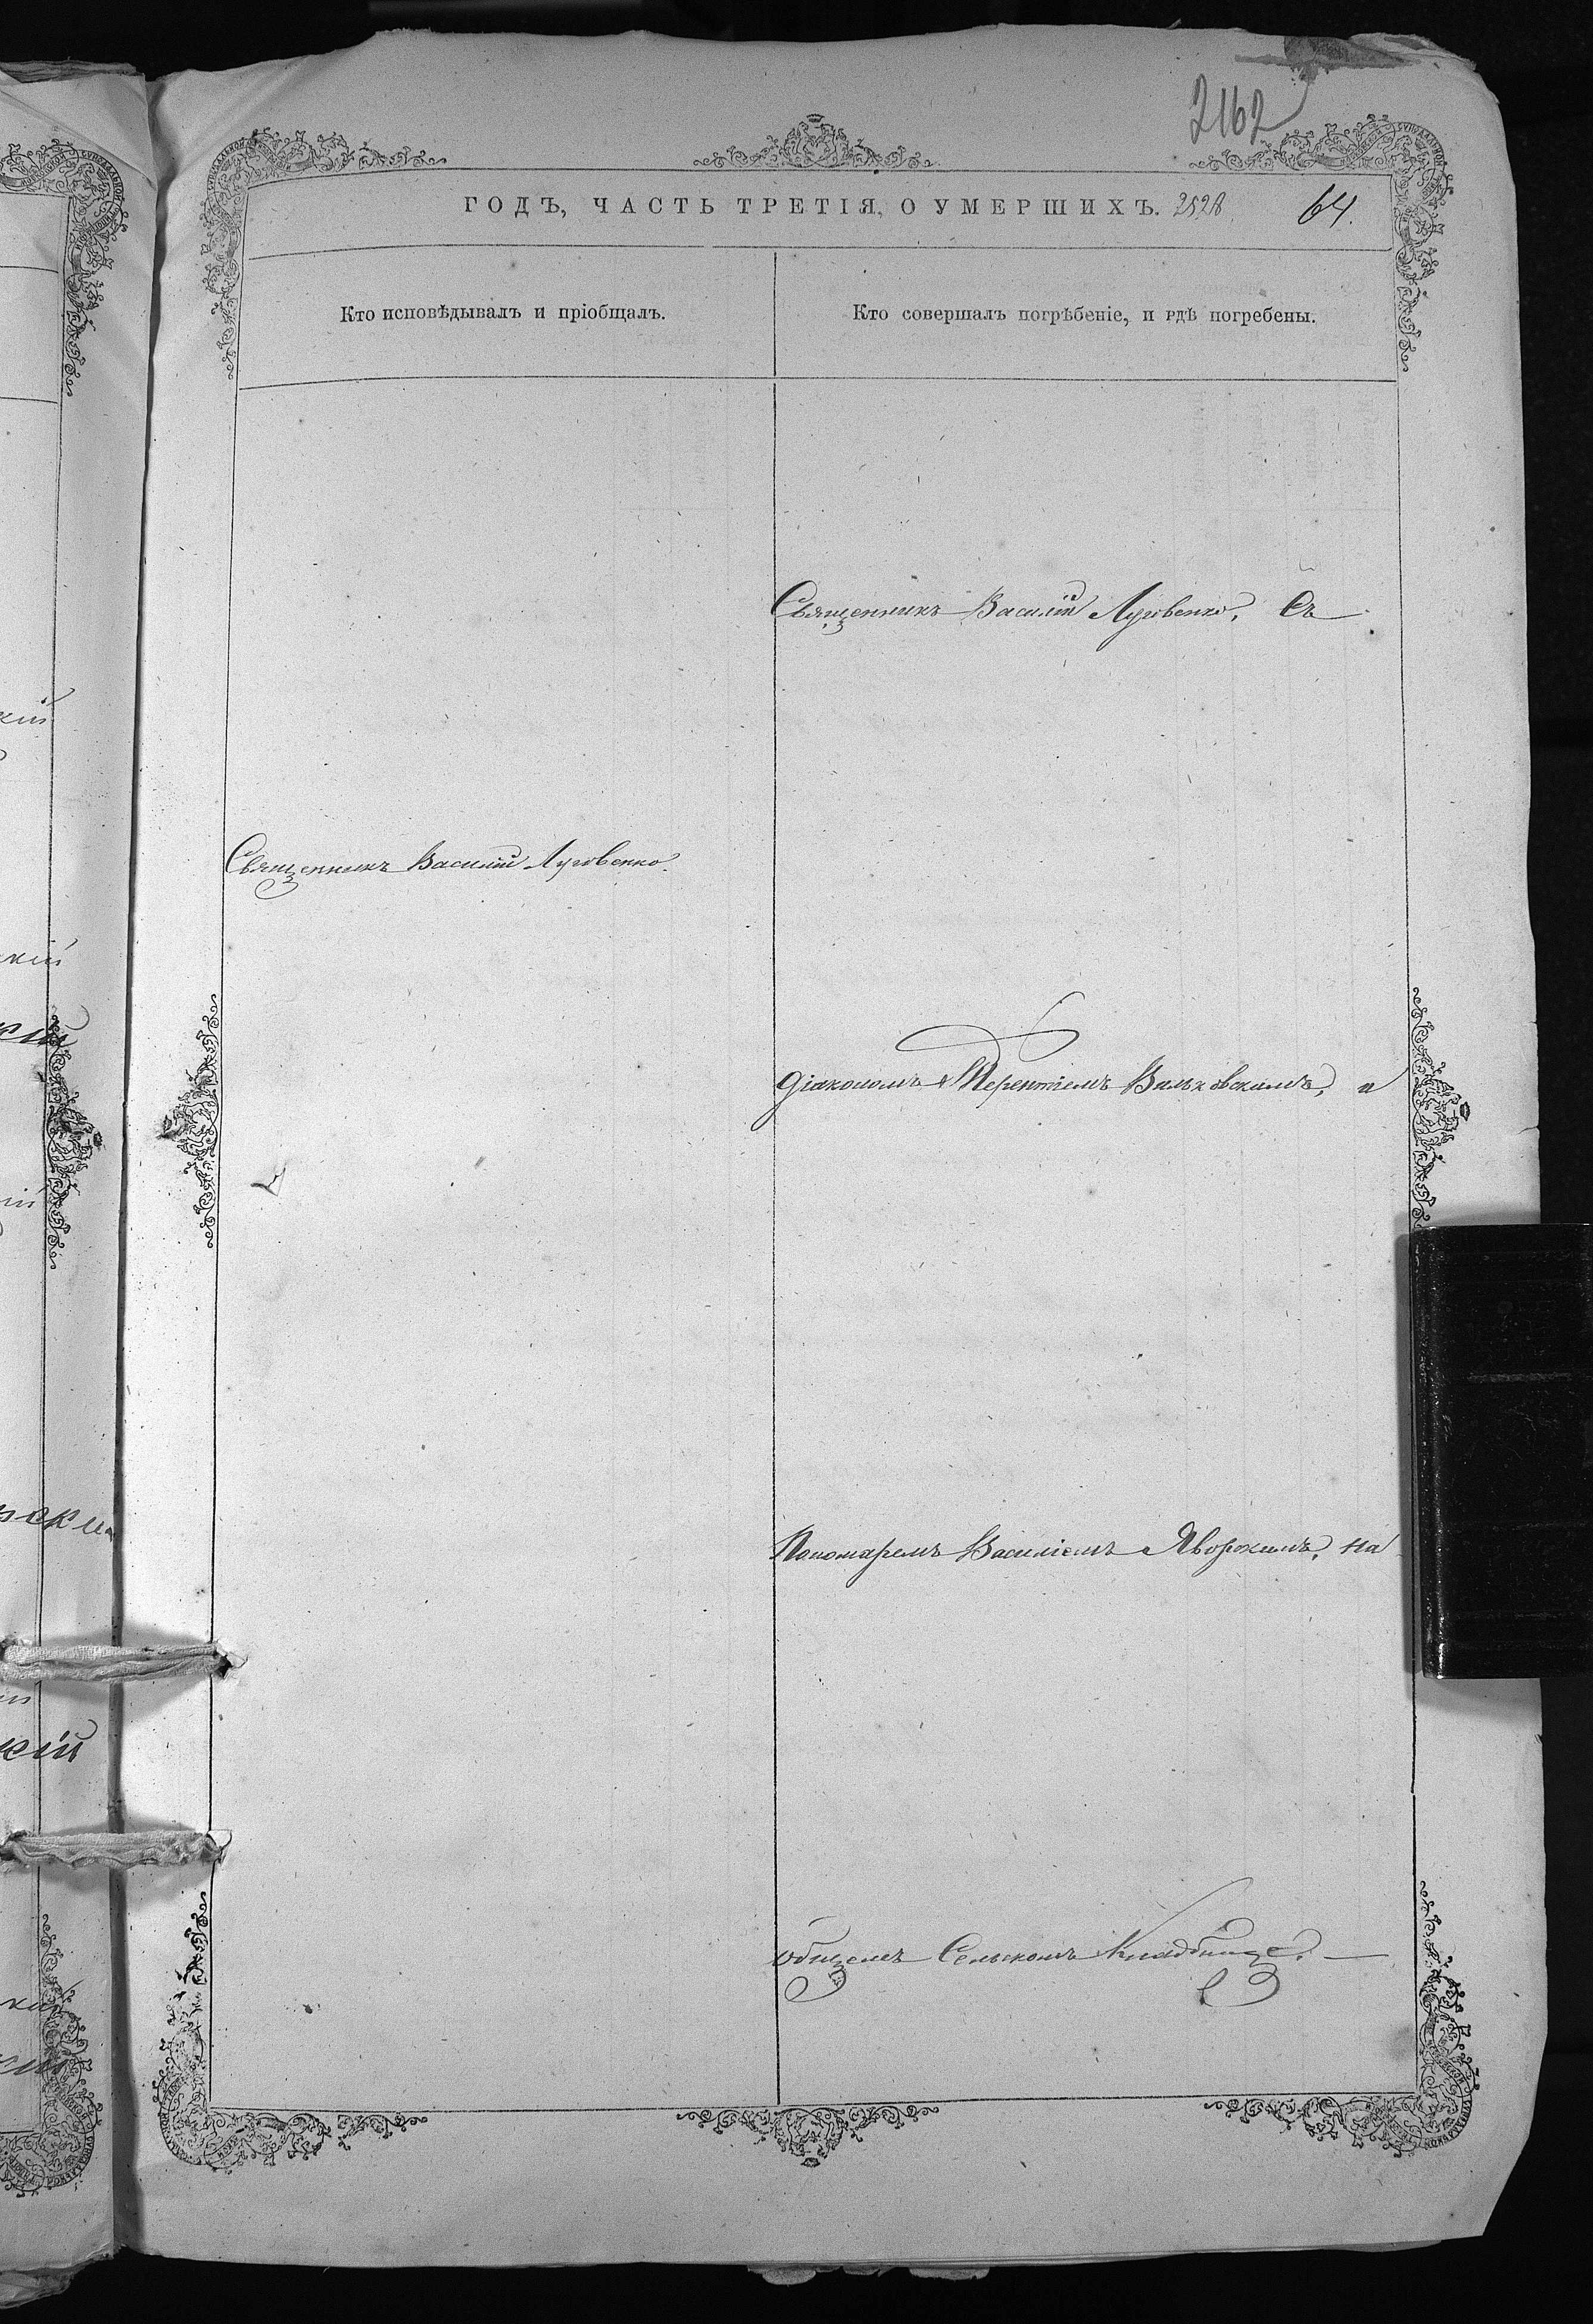 2162
ГОДЪ, ЧАСТЬ ТРЕТІЯ, О УМЕРШИХЪ. 2528 64.
Кто исповѣдывалъ и пріобщалъ.
Кто совершалъ погрѣбеніе, и гдѣ погребены.
Священникъ Василій Луговенко, Съ
Священникъ Василій Луговенко.
діакономъ Терентіемъ Вильховскимъ, и
Пономаремъ Василіемъ Яворскимъ, на
общемъ Сельскомъ Кладбищѣ. —